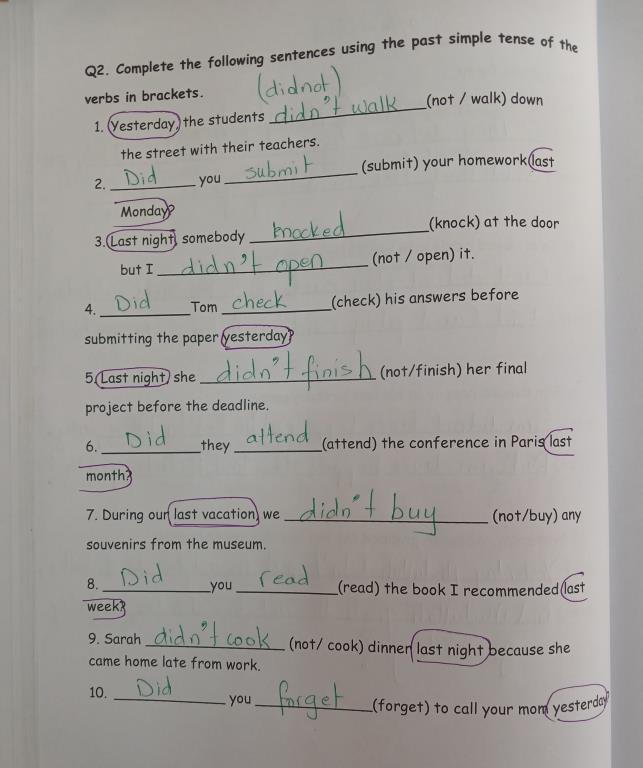 Q2. Complete the following sentences using the past simple tense of the
verbs in brackets. (didnot)
1. Yesterday, the students didn't walk (not / walk) down
the street with their teachers.
2. Did you submit (submit) your homework last
Monday?
3. Last night, somebody knocked (knock) at the door
but I didn't open (not / open) it.
4. Did Tom check (check) his answers before
submitting the paper yesterday?
5. Last night, she didn't finish (not/finish) her final
project before the deadline.
6. Did they attend (attend) the conference in Paris last
month?
7. During our last vacation, we didn't buy (not/buy) any
souvenirs from the museum.
8. Did you read (read) the book I recommended last
week?
9. Sarah didn't cook (not/ cook) dinner last night because she
came home late from work.
10. Did you forget (forget) to call your mom yesterday